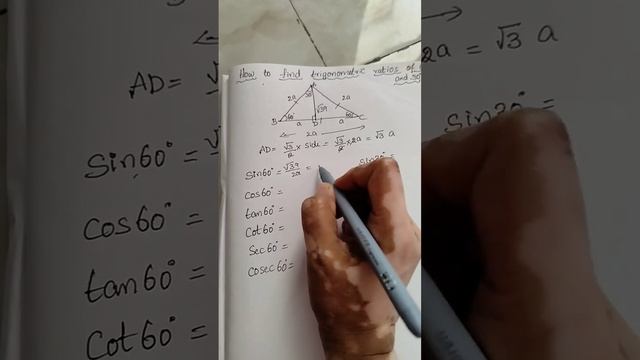 How to find trigonometric ratios of
and 30°
A
2a 30° 2a
√3a
B 60° a D a 60° C
2a
AD = √3/2 × side = √3/2 × 2a = √3 a
Sin60° = √3a/2a =
cos60° =
tan60° =
Cot60° =
Sec60° =
cosec60° =
AD =
Sin60° =
cos60° =
tan60° =
Cot60° =
2a = √3 a